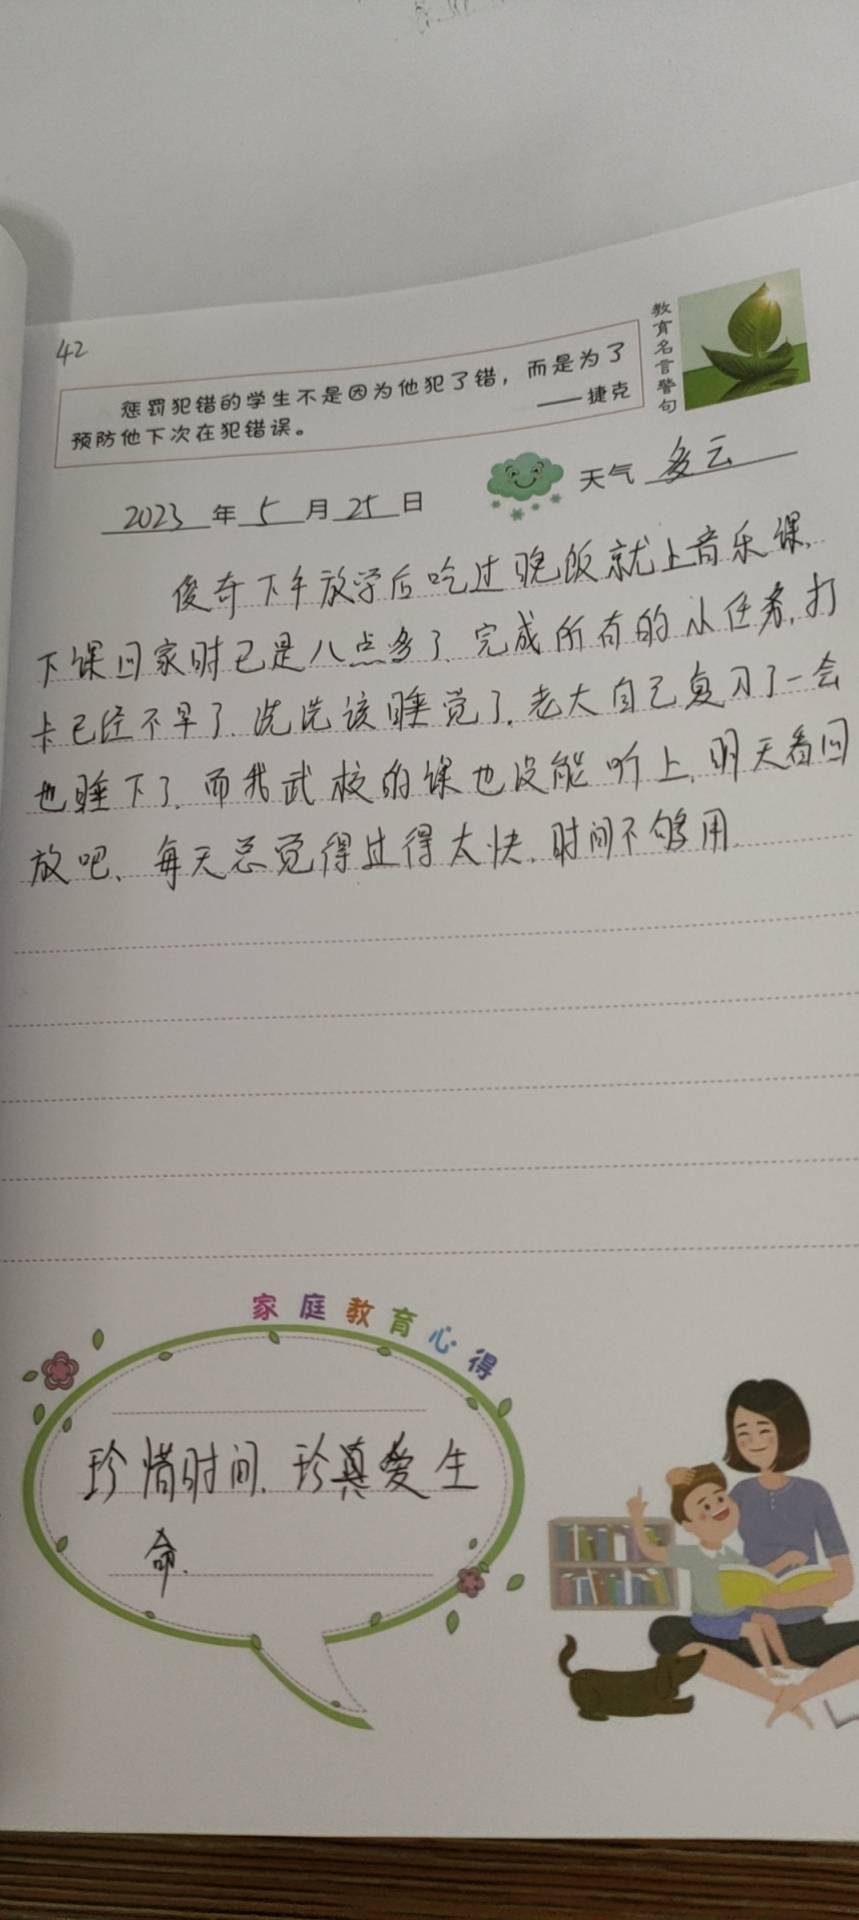 42
惩罚犯错的学生不是因为他犯了错，而是为了
预防他下次在犯错误。
——捷克
教育名言警句
2023年5月25日 天气 多云
俊奇下午放学后吃过晚饭就上音乐课.
下课回家时已是八点多了.完成所有的小任务.打
卡已经不早了.洗洗该睡觉了.老大自己复习了一会
也睡下了.而我武校的课也没能听上.明天看回
放吧、每天总觉得过得太快.时间不够用.
家庭教育心得
珍惜时间.珍真爱生
命.